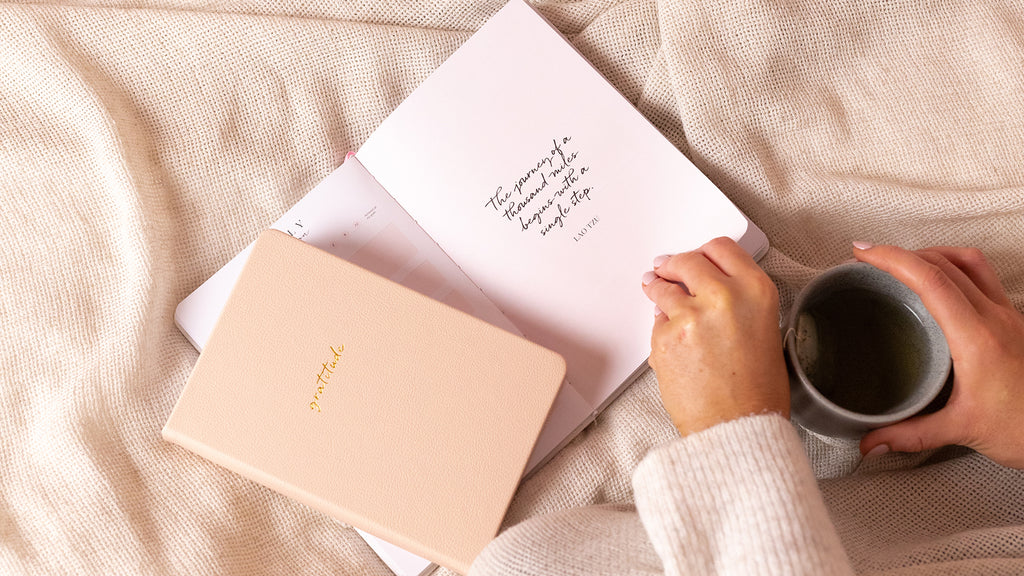 The journey of a
thousand miles
begins with a
single step.
LAO TZU
gratitude